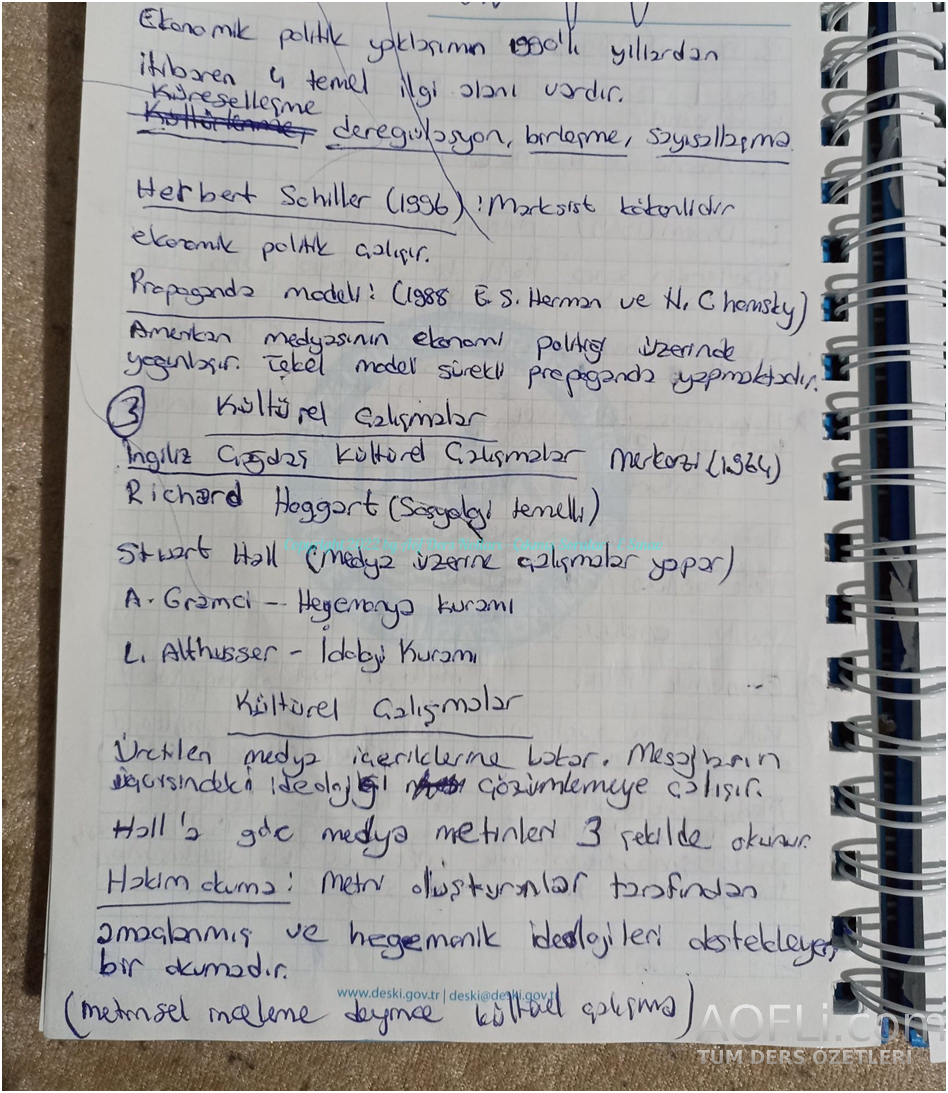 Ekonomik politik yaklaşımın 1990'lı yıllardan
itibaren 4 temel ilgi alanı vardır.
Küreselleşme
deregülasyon, birleşme, sayısallaşma
Herbert Schiller (1996) : Marksist kökenlidir
ekonomik politik çalışır.
Propaganda modeli : (1988 E.S. Herman ve N. Chomsky)
Amerikan medyasının ekonomi politiği üzerinde
yoğunlaşır. Tekel model sürekli propaganda yapmaktadır.
3 Kültürel Çalışmalar
İngiliz Çağdaş Kültürel Çalışmalar Merkezi (1964)
Richard Hoggart (Sosyoloji temelli)
Stuart Hall (medya üzerine çalışmalar yapar)
A. Gramci - Hegemonya kuramı
L. Althusser - İdeoloji Kuramı
Kültürel Çalışmalar
Üretilen medya içeriklerine bakar. Mesajların
içerisindeki ideolojiyi çözümlemeye çalışır.
Hall'a göre medya metinleri 3 şekilde okunur.
Hakim okuma : Metni oluşturanlar tarafından
amaçlanmış ve hegemonik ideolojileri destekleyen
bir okumadır.
www.deski.gov.tr | deski@deski.gov.tr
(metinsel inceleme deyince kültürel çalışma)
AOFLi.com
TÜM DERS ÖZETLERİ